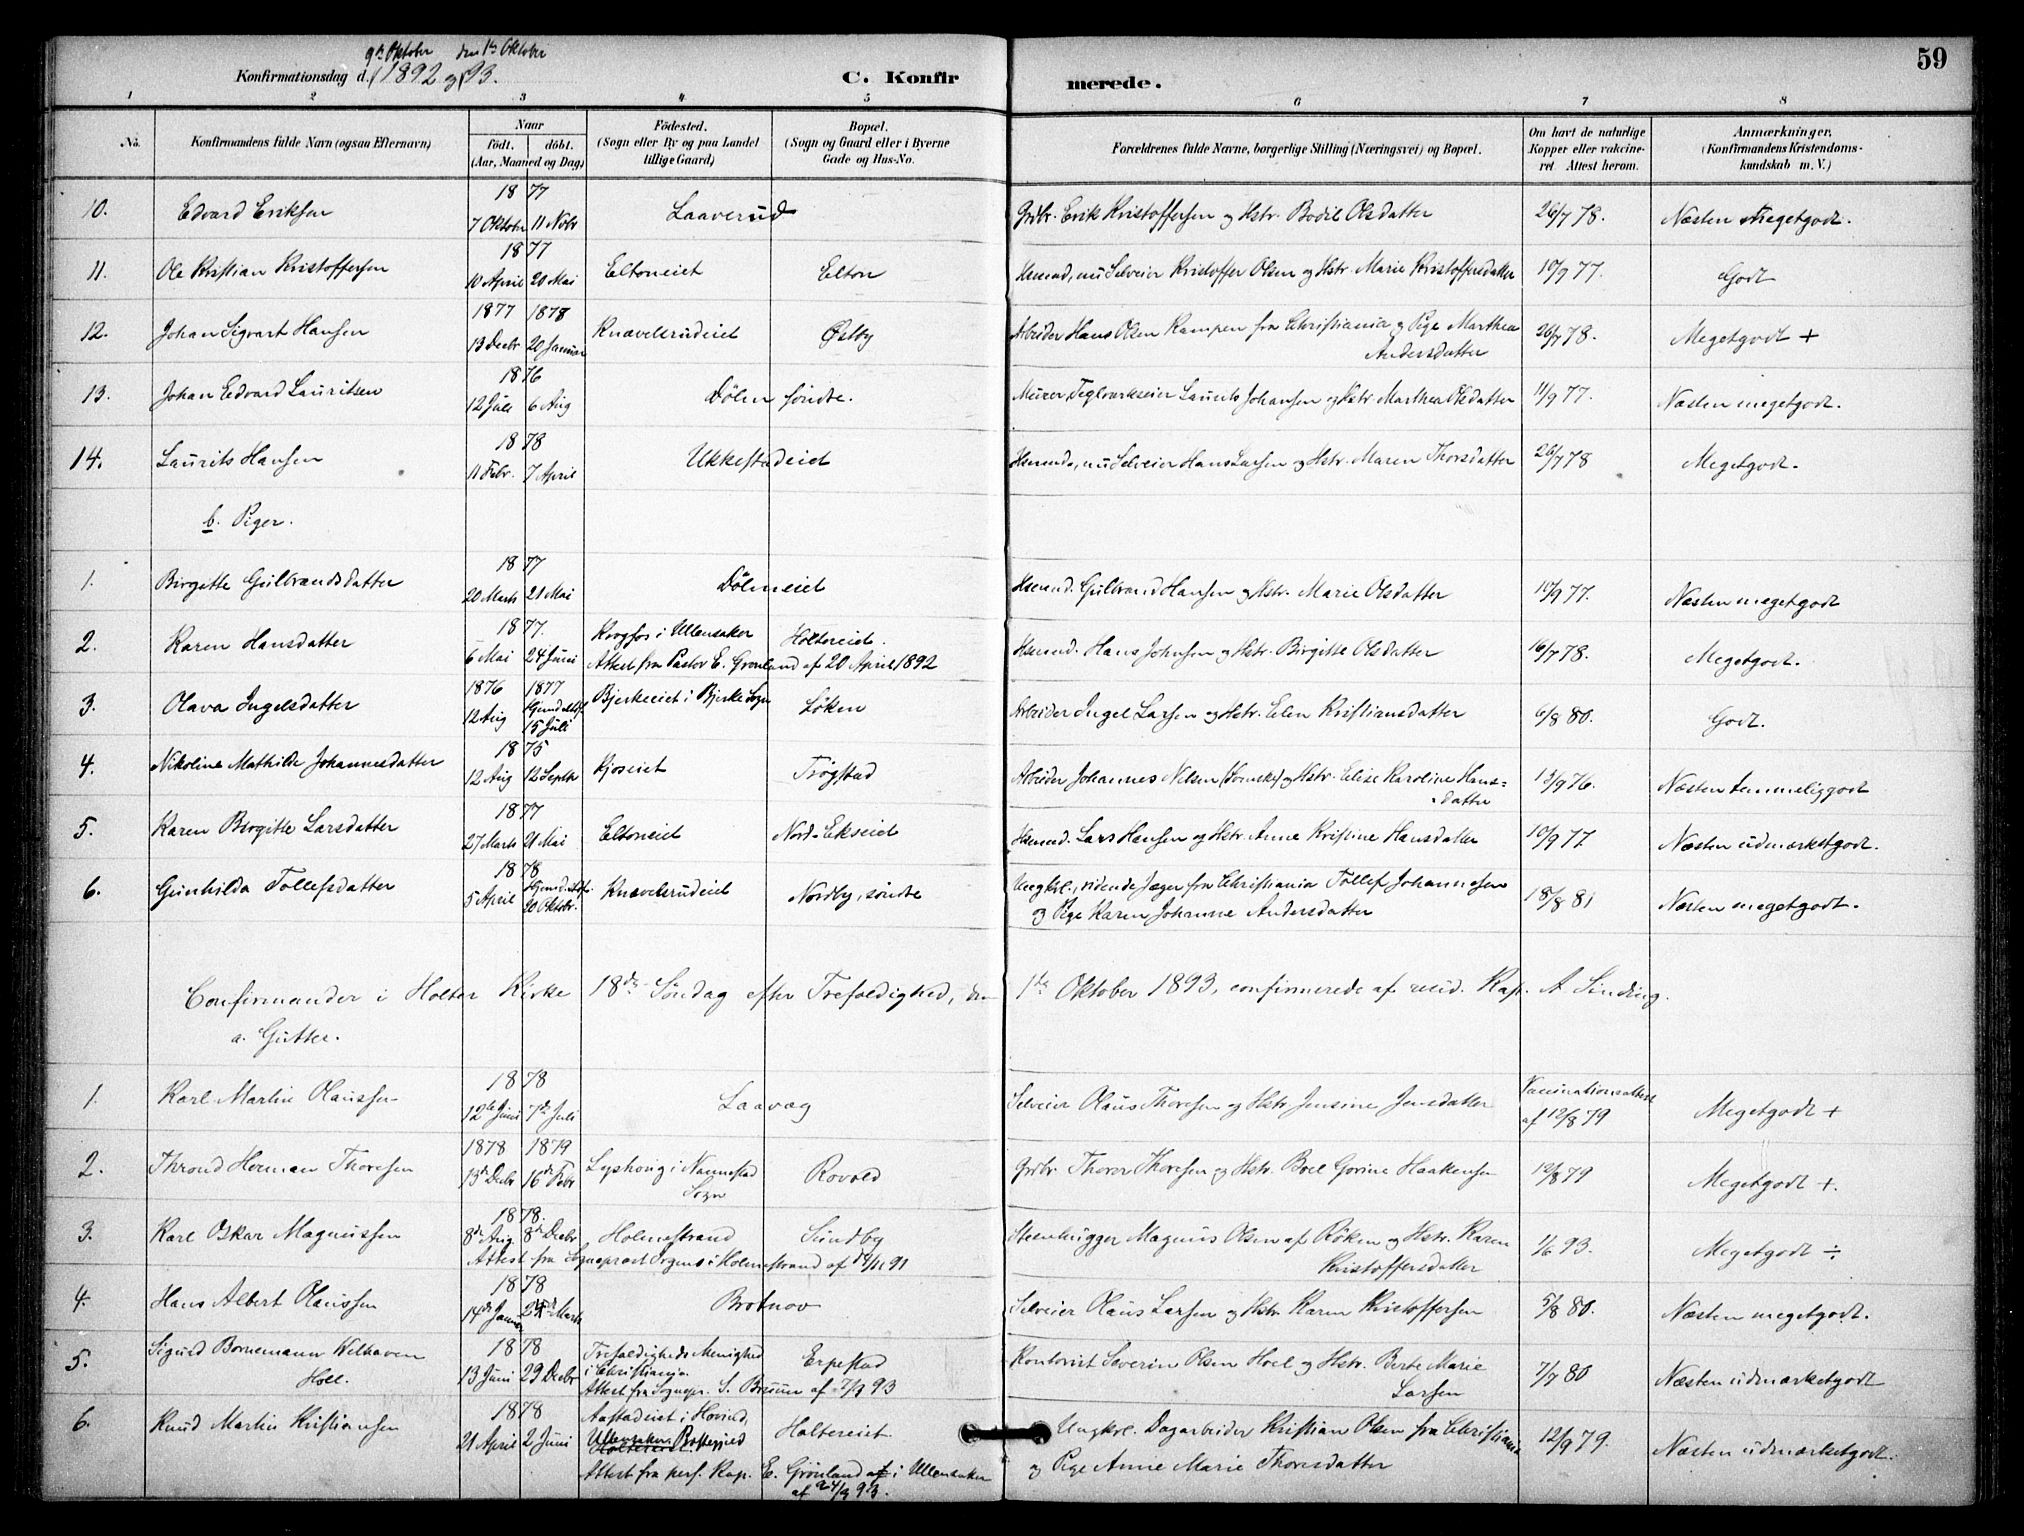 59
9de Oktober den 1ste Oktober
Konfirmationsdag d. 1892 og 93.
C. Konfirmerede.
1 2 3 4 5 6 7 8
No. Konfirmandens fulde Navn (ogsaa Efternavn) Naar födt. döbt. (Aar, Maaned og Dag) Födested. (Sogn eller By og paa Landet tillige Gaard) Bopæl. (Sogn og Gaard eller i Byerne Gade og Hus-No. Forældrenes fulde Navne, borgerlige Stilling (Næringsvei) og Bopæl. Om havt de naturlige Kopper eller vakcineret. Attest herom. Anmærkninger. (Konfirmandens Kristendomskundskab m. V.)
10. Edvard Eriksen 1877 7 Oktober 11 Novbr Laaverud Grdbr. Erik Kristoffersen og Hstr. Bodil Olsdatter 26/7 78. Næsten Megetgodt.
11. Ole Kristian Kristoffersen 1877 10 April 20 Mai Eltoneiet Elton Hsmand, nu Selveier Kristoffer Olsen og Hstr. Marie Kristoffersdatter 10/9 77. Godt
12. Johan Sigvart Hansen 1877 1878 13 Decbr 20 Januar Knavelsrudeiet Østby Arbeider Hans Olsen Kampen fra Christiania og Pige Marthea Andersdatter 26/7 78. Megetgodt +
13. Johan Edvard Lauritsen 1876 12 Juli 6 Aug Dølen søndre. Murer, Teglværkseier Laurits Johansen og Hstr. Marthea Olsdatter 11/9 77. Næsten megetgodt.
14. Laurits Hansen 1878 11 Febr. 7 April Ukkestadeiet Hsmand, nu Selveier Hans Larsen og Hstr. Maren Thorsdatter 26/7 78 Megetgodt.
b. Piger.
1. Birgitte Gulbrandsdatter 1877 20 Marts 21 Mai Døleneiet Hsmand. Gulbrand Hansen og Hstr. Marie Olsdatter 10/9 77. Næsten megetgodt
2. Karen Hansdatter 1877. 6 Mai 24 Juni Krogfos i Ullensaker Holtereiet. Hsmand. Hans Johnsen og Hstr. Birgitte Olsdatter 16/7 78. Megetgodt.
Attest fra Pastor E. Grønland af 20 April 1892
3. Olava Ingelsdatter 1876 1877 12 Aug 15 Juli Bjerkeeiet i Bjerke Sogn Løken Arbeider Ingel Larsen og Hstr. Elen Kristiansdatter 6/8 80. Godt.
4. Nikoline Mathilde Johannesdatter 1875 12 Aug 12 Septbr Kjoseiet Trøgstad Arbeider Johannes Nilsen (Svenske) og Hstr. Elise Karoline Hansdatter 13/9 76. Næsten temmeliggodt
5. Karen Birgitte Larsdatter 1877 27 Marts 21 Mai Eltoneiet Nord-Ekseiet Hsmand. Lars Hansen og Hstr. Anne Kristine Hansdatter 10/9 77 Næsten udmærketgodt.
6. Gunhilda Tollefsdatter 1878 5 April 20 Oktobr. Knavelsrudeiet Nordby, søndre Ungkrl., ridende Jæger fra Christiania Tollef Johannesen og Pige Karen Johanne Andersdatter 18/8 81 Næsten megetgodt.
Confirmander i Holter Kirke 18de Søndag efter Trefoldighed, den 1ste Oktober 1893, confirmerede af resid. Kap. A. Sinding.
a. Gutter.
1. Karl Martin Olaussen 1878 12te Juni 7de Juli Laavæg Selveier Olaus Thoresen og Hstr. Jensine Jensdatter Vaccinationsattest af 12/8 79 Megetgodt +
2. Thrond Herman Thoresen 1878 1879 13de Decbr 16de Febr Løpshoug i Nannestad Sogn Rovold Grdbr. Thorer Thoresen og Hstr. Boel Gorine Haakensen 12/8 79 Megetgodt +.
3. Karl Oskar Magnussen 1878. 8de Aug. 8de Decbr Holmestrand Sundby Steenhugger Magnus Olsen af Røken og Hstr. Karen Kristoffersdatter 1/6 93. Megetgodt ÷
Attest fra Sogneprest Irgens i Holmestrand af 19/11 91
4. Hans Albert Olaussen 1878 14de Januar 24de Marts Brotnov Selveier Olaus Larsen og Hstr. Karen Kristoffersen 5/8 80. Næsten megetgodt.
5. Sigurd Bornemann Welhaven Hoel. 1878 13 Juni 29 Decbr Trefoldigheds Menighed i Christiania. Erpestad Kontorist Severin Olsen Hoel og Hstr. Berte Marie Larsen 7/7 80 Næsten udmærketgodt
Attest fra Sognepr. S. Bruun af 2/9 93
6. Knud Martin Kristiansen 1878 21 April 2 Juni Aastadeiet i Hovind, Ullensakers Præstegjeld Holtereiet Ungkrl. Dagarbeider Kristian Olsen fra Christiania og Pige Anne Marie Thoresdatter 12/9 79. Næsten udmærketgodt.
Attest fra pers. Kap. E. Grønland i Ullensaker af 24/9 93.